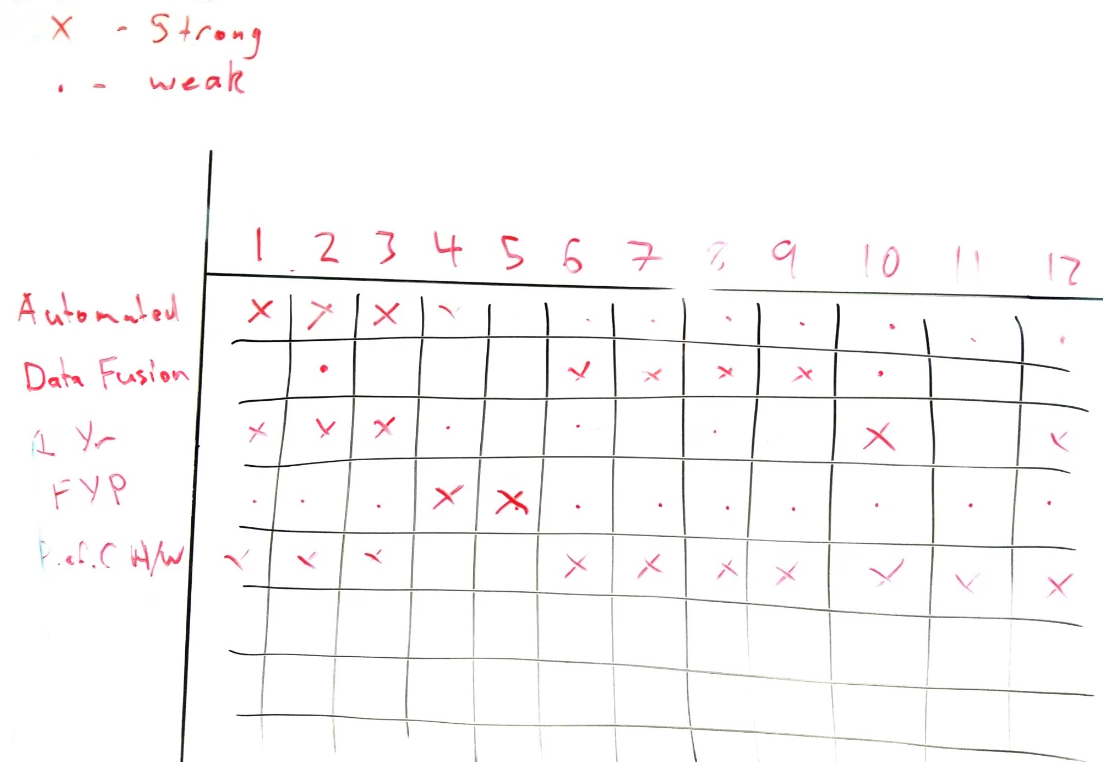 X - Strong
. - weak
1 2 3 4 5 6 7 8 9 10 11 12
Automated X X X X . . . . . . .
Data Fusion . X X X X .
1 Yr X X X . . . X X
FYP . . . X X . . . . . . .
C H/W X X X X X X X X X X